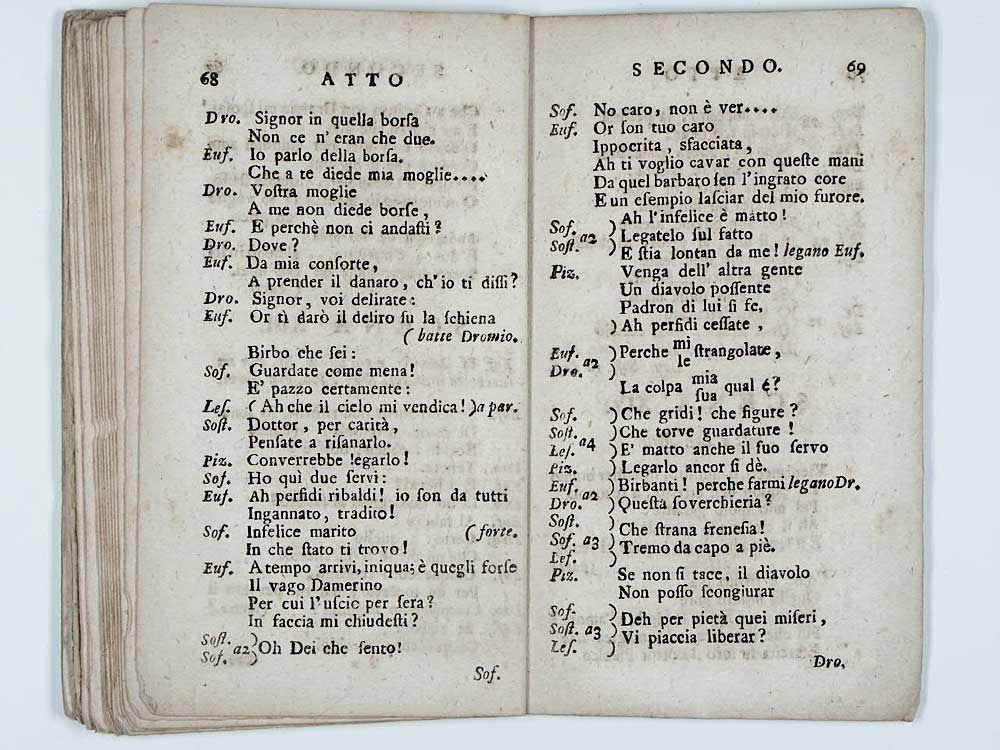 68 ATTO
Dro. Signor in quella borſa
Non ce n' eran che due.
Euf. Io parlo della borſa.
Che a te diede mia moglie....
Dro. Voſtra moglie
A me non diede borſe,
Euf. E perchè non ci andaſti?
Dro. Dove?
Euf. Da mia conſorte,
A prender il danaro, ch' io ti diſſi?
Dro. Signor, voi delirate:
Euf. Or tì darò il deliro ſu la ſchiena
( batte Dromio.
Birbo che ſei:
Sof. Guardate come mena!
E' pazzo certamente:
Leſ. ( Ah che il cielo mi vendica! ) a par.
Soſt. Dottor, per carità,
Penſate a riſanarlo.
Piz. Converrebbe legarlo!
Sof. Ho quì due ſervi:
Euf. Ah perfidi ribaldi! io ſon da tutti
Ingannato, tradito!
Sof. Infelice marito ( forte.
In che ſtato ti trovo!
Euf. A tempo arrivi, iniqua; è quegli forſe
Il vago Damerino
Per cui l' uſcio per ſera?
In faccia mi chiudeſti?
Soſt. )
a2 ) Oh Dei che ſento!
Sof. )
Sof.
SECONDO. 69
Sof. No caro, non è ver....
Euf. Or ſon tuo caro
Ippocrita, sfacciata,
Ah ti voglio cavar con queſte mani
Da quel barbaro ſen l' ingrato core
E un eſempio laſciar del mio furore.
Ah l' infelice è matto!
Sof. ) a2 Legatelo ſul fatto
Soſt. ) E ſtia lontan da me! legano Euf.
Piz. Venga dell' altra gente
Un diavolo poſſente
Padron di lui ſi fe,
) Ah perfidi ceſſate,
Euf. ) a2 Perche mi le ſtrangolate,
Dro. )
La colpa mia ſua qual é?
Sof. ) Che gridi! che figure?
Soſt. ) a4 Che torve guardature!
Leſ. ) E' matto anche il ſuo ſervo
Piz. ) Legarlo ancor ſi dè.
Euf. ) a2 Birbanti! perche farmi legano Dr.
Dro. ) Queſta ſoverchieria?
Soſt. ) Che ſtrana freneſia!
Sof. a3 ) Tremo da capo a piè.
Leſ. )
Piz. Se non ſi tace, il diavolo
Non poſſo ſcongiurar
Sof. ) Deh per pietà quei miſeri,
Soſt. a3 ) Vi piaccia liberar?
Leſ. )
Dro,